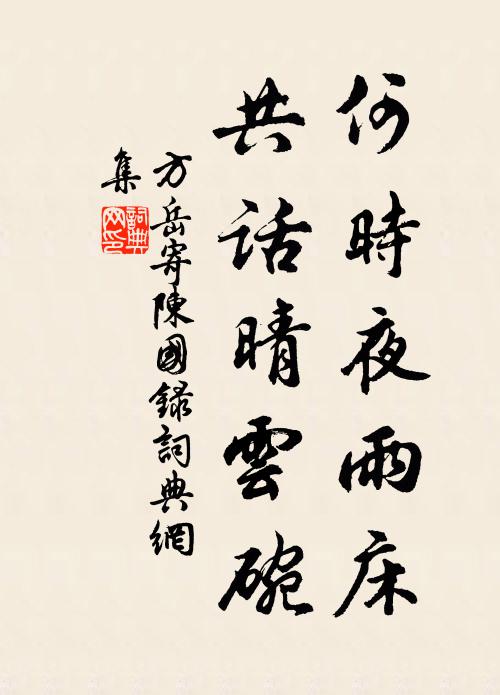 何時夜雨床
共話晴雲碗
方岳寄陳國錄詞典網
集
詞典
网印